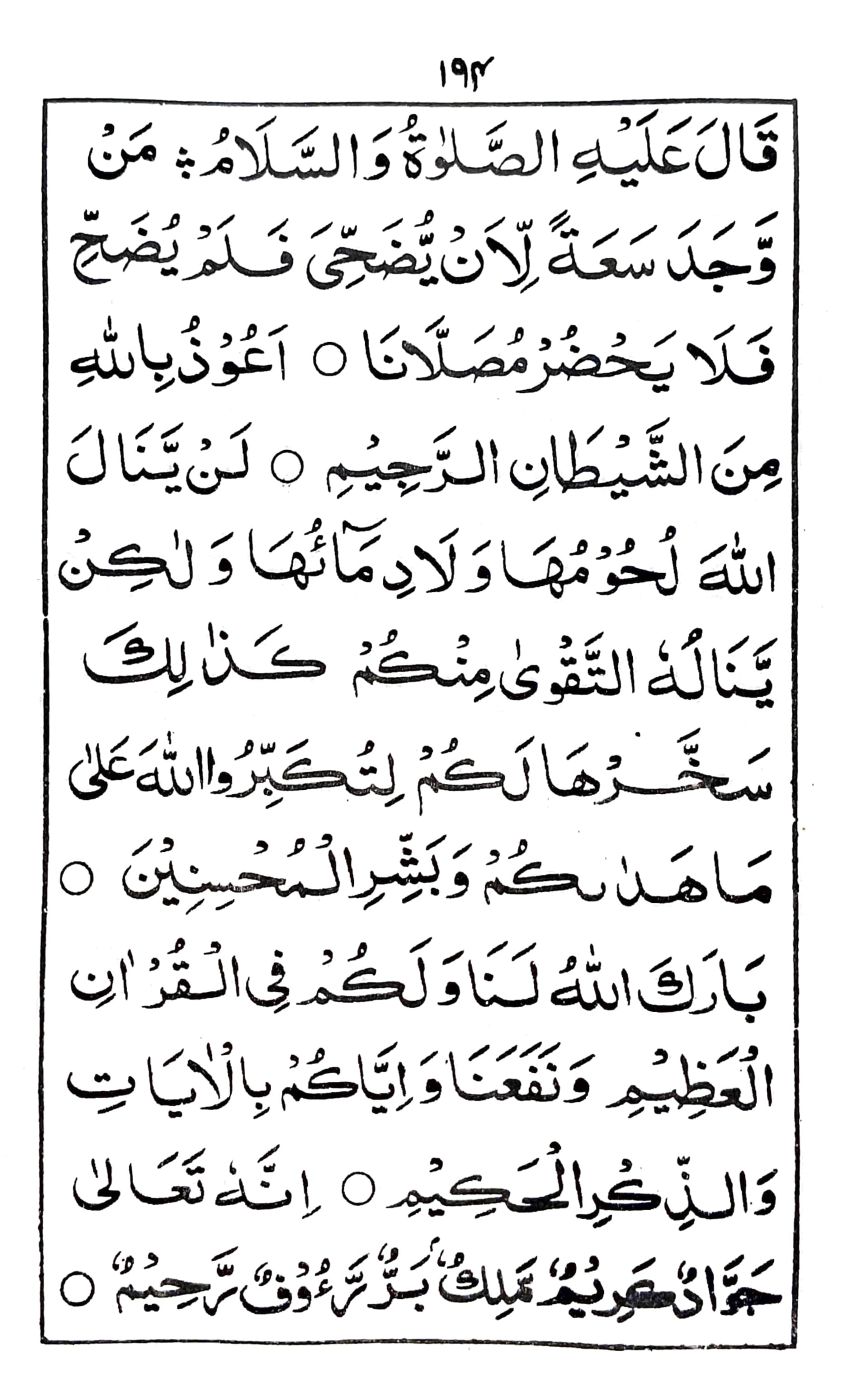 ۱۹۴
قَالَ عَلَيْهِ الصَّلٰوةُ وَالسَّلَامُ ؞ مَنْ
وَّجَدَ سَعَةً لِّاَنْ يُّضَحِّىَ فَلَمْ يُضَحِّ
فَلَا يَحْضُرْ مُصَلَّانَا ○ اَعُوْذُ بِاللّٰهِ
مِنَ الشَّيْطَانِ الرَّجِيْمِ ○ لَنْ يَّنَالَ
اللّٰهَ لُحُوْمُهَا وَلَا دِمَآئُهَا وَلٰكِنْ
يَّنَالُهُ التَّقْوٰى مِنْكُمْ كَذٰلِكَ
سَخَّرْهَا لَكُمْ لِتُكَبِّرُوا اللّٰهَ عَلٰى
مَا هَدٰىكُمْ وَبَشِّرِ الْمُحْسِنِيْنَ ○
بَارَكَ اللّٰهُ لَنَا وَلَكُمْ فِى الْقُرْاٰنِ
الْعَظِيْمِ وَنَفَعَنَا وَاِيَّاكُمْ بِالْاٰيَاتِ
وَالذِّكْرِ الْحَكِيْمِ ○ اِنَّهٗ تَعَالٰى
جَوَّادٌ كَرِيْمٌ مَّلِكٌ بَرٌّ رَّءُوْفٌ رَّحِيْمٌ ○